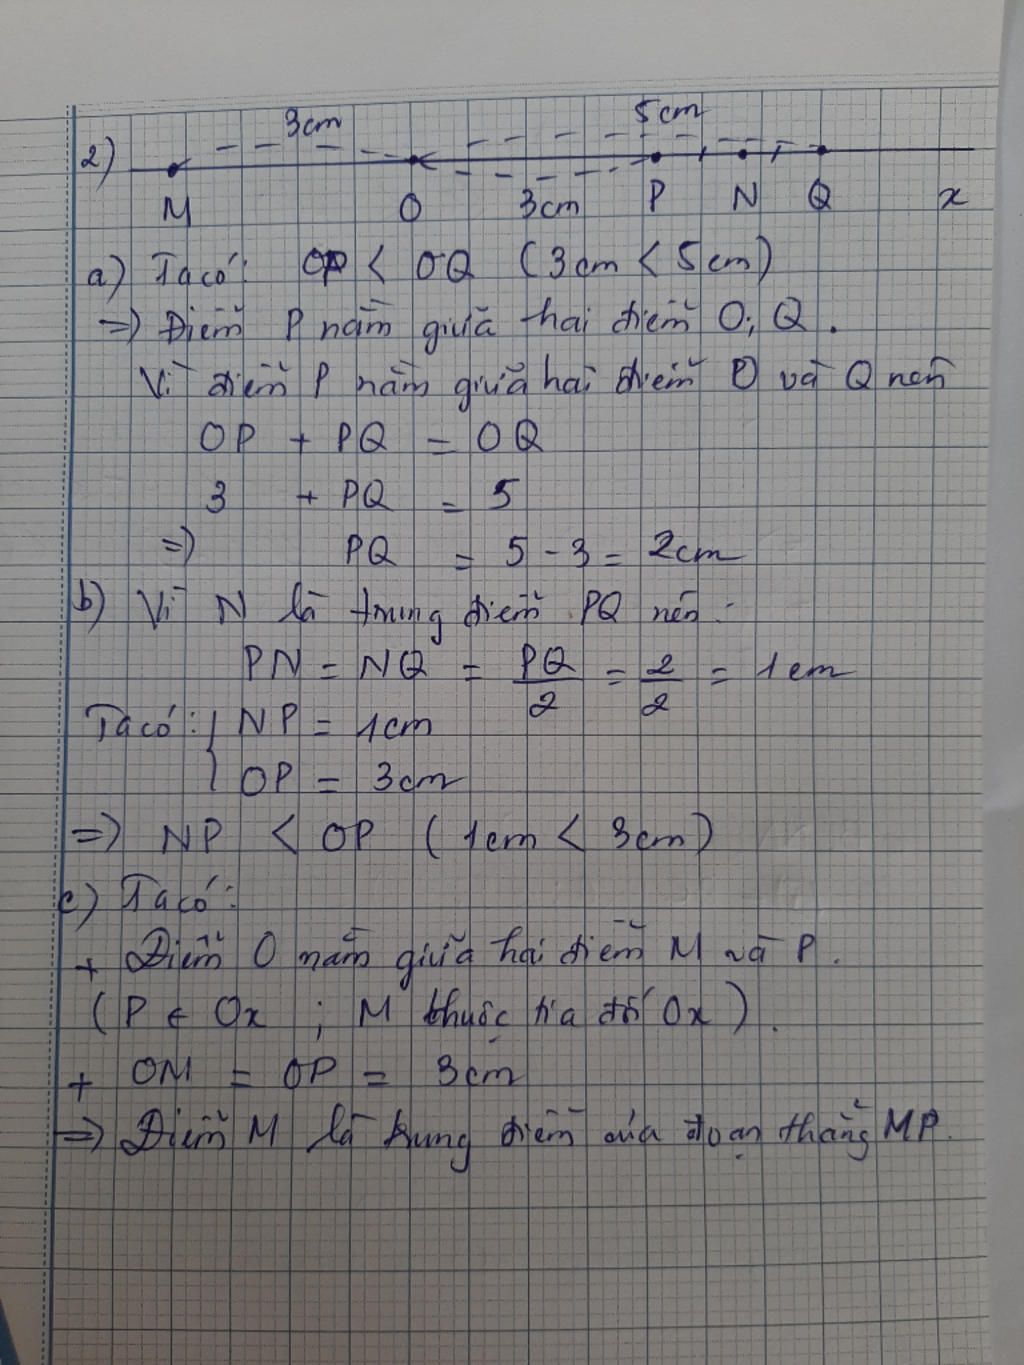 3cm 5cm
2)
M O 3cm P N Q x
a) Ta có: OP < OQ (3cm < 5cm)
=> Điểm P nằm giữa hai điểm O; Q.
Vì điểm P nằm giữa hai điểm O và Q nên
OP + PQ = OQ
3 + PQ = 5
=> PQ = 5 - 3 = 2cm
b) Vì N là trung điểm PQ nên:
PN = NQ = PQ/2 = 2/2 = 1cm
Ta có: { NP = 1cm
OP = 3cm
=> NP < OP (1cm < 3cm)
c) Ta có:
+ Điểm O nằm giữa hai điểm M và P.
(P ∈ Ox ; M thuộc tia đối Ox).
+ OM = OP = 3cm
=> Điểm M là trung điểm của đoạn thẳng MP.